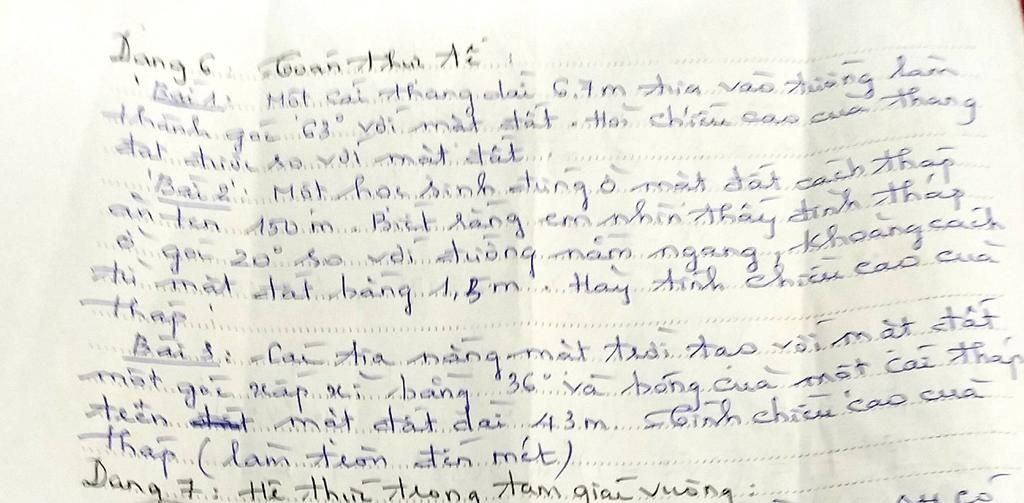 Dạng 6: Toán thực tế:
Bài 1: Một cái thang dài 6,7m tựa vào tường làm
thành góc 63° với mặt đất. Hỏi chiều cao của thang
đạt được so với mặt đất.
Bài 2: Một học sinh đứng ở mặt đất cách tháp
ăn ten 150m. Biết rằng em nhìn thấy đỉnh tháp
ở góc 20° so với đường nằm ngang, khoảng cách
từ mặt đất bằng 1,5m. Hãy tính chiều cao của
tháp.
Bài 3: Các tia nắng mặt trời tạo với mặt đất
một góc xấp xỉ bằng 36° và bóng của một cái tháp
trên mặt đất dài 43m. Tính chiều cao của
tháp (làm tròn đến mét)
Dạng 7: Hệ thức trong tam giác vuông: